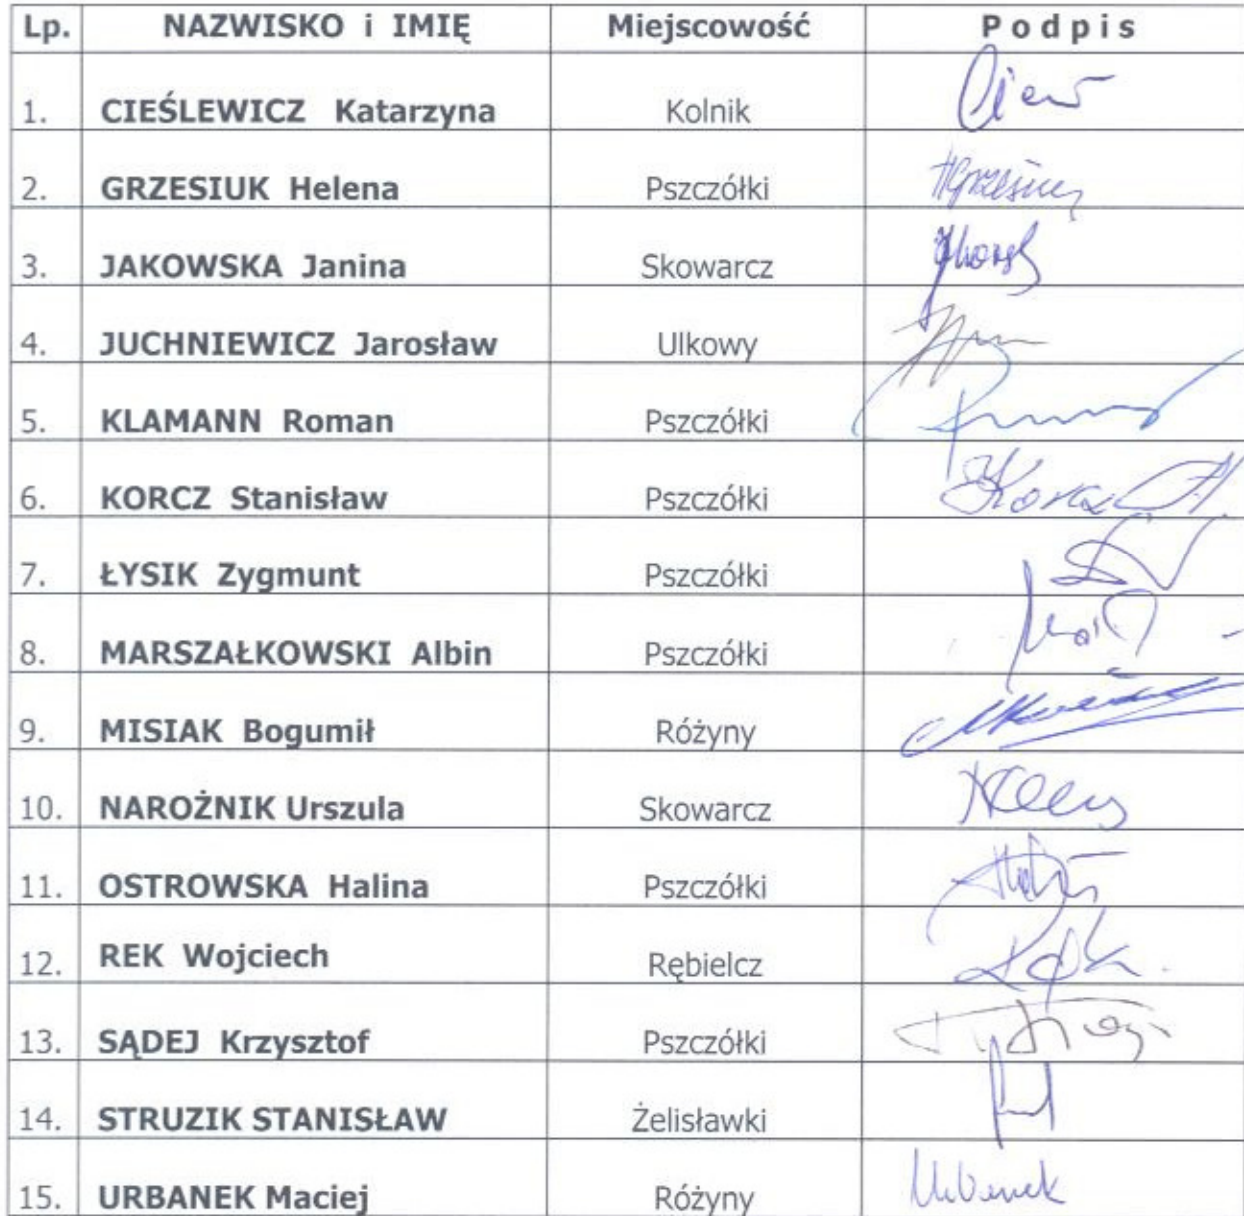 Lp. NAZWISKO i IMIĘ Miejscowość Podpis
1. CIEŚLEWICZ Katarzyna Kolnik
2. GRZESIUK Helena Pszczółki
3. JAKOWSKA Janina Skowarcz
4. JUCHNIEWICZ Jarosław Ulkowy
5. KLAMANN Roman Pszczółki
6. KORCZ Stanisław Pszczółki Korcz St.
7. ŁYSIK Zygmunt Pszczółki
8. MARSZAŁKOWSKI Albin Pszczółki
9. MISIAK Bogumił Różyny
10. NAROŻNIK Urszula Skowarcz
11. OSTROWSKA Halina Pszczółki
12. REK Wojciech Rębielcz
13. SĄDEJ Krzysztof Pszczółki
14. STRUZIK STANISŁAW Żelisławki
15. URBANEK Maciej Różyny Urbanek